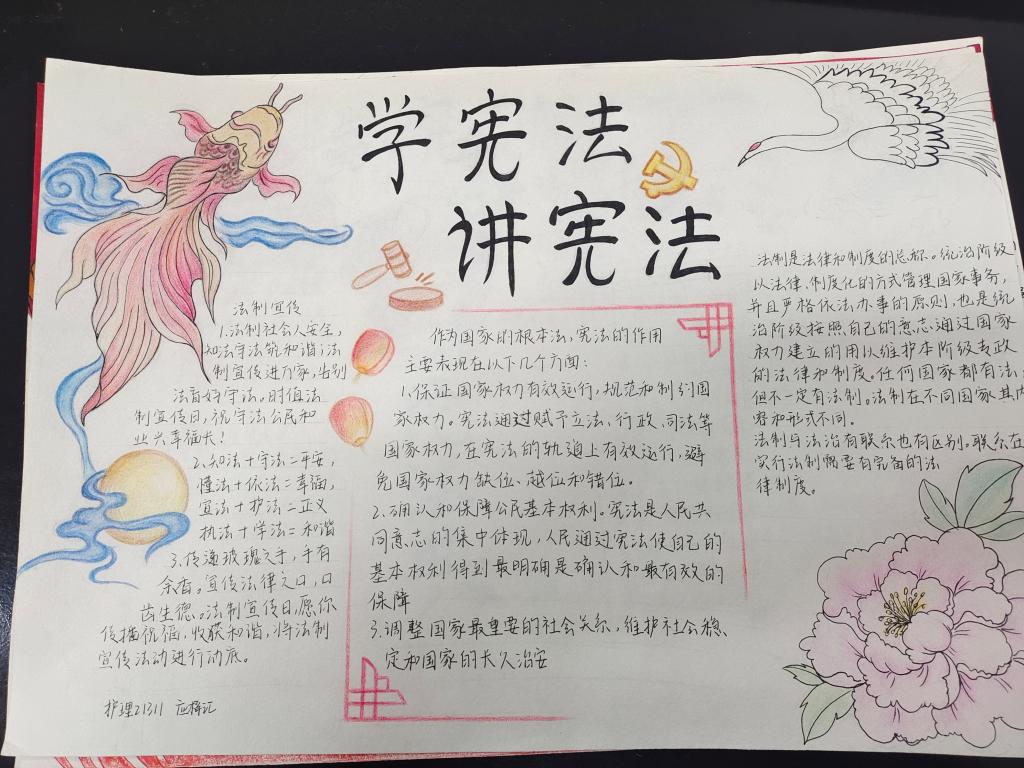 学宪法
讲宪法
法制宣传
1.法制社会人安全,
知法守法筑和谐;法
制宣传进万家,告别
法盲好守法。时值法
制宣传日,祝守法公民和
业兴幸福长!
2、知法+守法=平安,
懂法+依法=幸福,
宣法+护法=正义
执法+学法=和谐
3.传递玫瑰之手,手有
余香。宣传法律之口,口
齿生德。法制宣传日,愿你
传播祝福,收获和谐,将法制
宣传活动进行动底。
护理21311
作为国家的根本法,宪法的作用
主要表现在以下几个方面:
1.保证国家权力有效运行,规范和制约国
家权力。宪法通过赋予立法、行政、司法等
国家权力,在宪法的轨道上有效运行,避
免国家权力缺位、越位和错位。
2.确认和保障公民基本权利。宪法是人民共
同意志的集中体现,人民通过宪法使自己的
基本权利得到最明确是确认和最有效的
保障
3.调整国家最重要的社会关系,维护社会稳、
定和国家的长久治安
法制是法律和制度的总称。统治阶级
以法律、制度化的方式管理国家事务,
并且严格依法办事的原则,也是统
治阶级按照自己的意志通过国家
权力建立的用以维护本阶级专政
的法律和制度。任何国家都有法
但不一定有法制。法制在不同国家其内
容和形式不同。
法制与法治有联系也有区别。联系在
实行法制需要有完备的法
律制度。